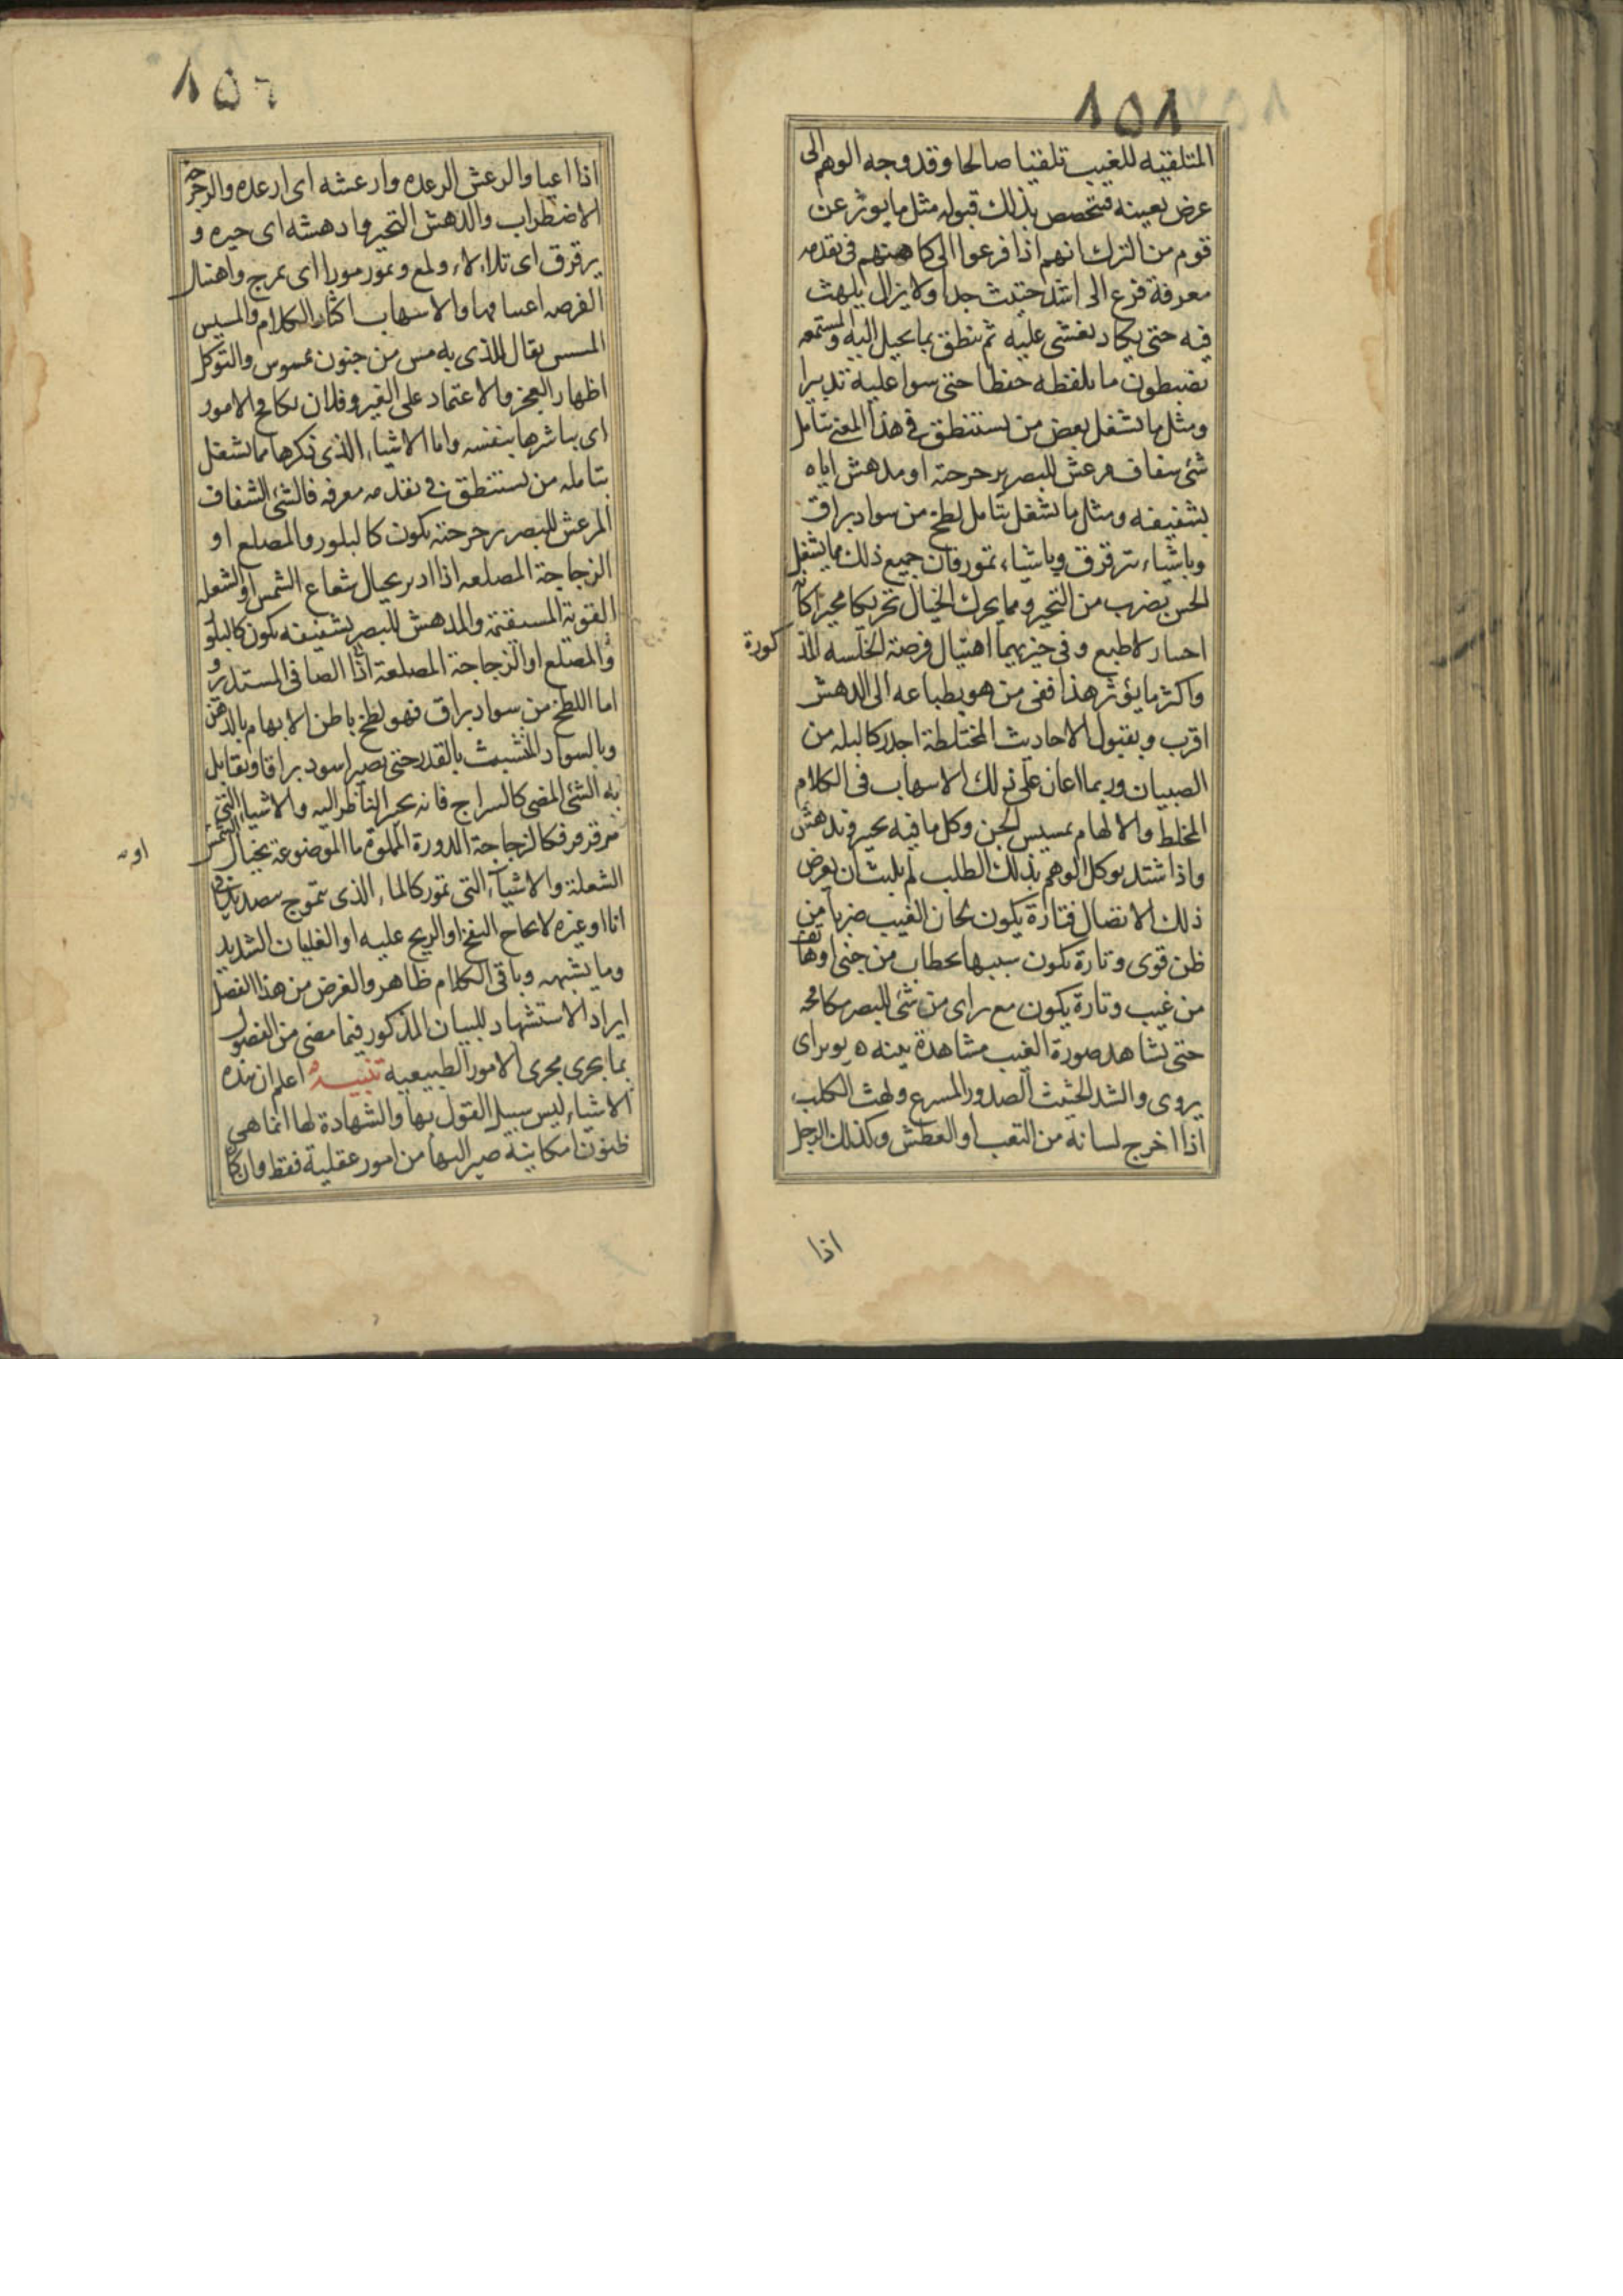 ١٥١
المتلقيه للغيب تلقيا صالحا وقد وجه الوهم الى
عرض بعينه فيتخصص بذلك قبوله مثل ما يوثر عن
قوم من الترك انهم اذا فرعوا الى كاهنهم فى تقدمه
معرفة فزع الى اشد حثيث جدا ولا يزال يلهث
فيه حتى يكاد يغشى عليه ثم ينطق بما يخيل اليه والمستمعه
يضبطون ما يلفظه حفظا حتى سوا عليه تدبيرا
ومثل ما يشغل بعض من يستنطق فى هذا المعنى بتامل
شئ شفاف مرعش للبصر برجرجته او مدهش اياه
بشفيفه ومثل ما يشغل بتامل لطخ من سواد براق
وباشياء تترقرق وباشياء تمور فان جميع ذلك مما يشغل
الحس بضرب من التحير ومما يحرك الخيال تحريكا محيرا كانه
احبار لا طبع وفى حيزيهما اهتبال فرصة الخلسه المذ
كورة
واكثر ما يؤثر هذا ففى من هو بطباعه الى الدهش
اقرب وبقبول الاحاديث المختلطة اجدر كالبله من
الصبيان وربما اعان على ذلك الاسهاب فى الكلام
المخلط والالهام بمسيس الجن وكل ما فيه تحير وتدهش
واذا اشتد توكل الوهم بذلك الطلب لم يلبث ان يعرض
ذلك الاتصال فتارة يكون لحان الغيب ضربا من
ظن قوى وتارة يكون سببها بخطاب من جنى او هاتف
من غيب وتارة يكون مع راى من شئ للبصر مكافحة
حتى يشاهد صورة الغيب مشاهدة يوبر اى
يروى والشد الحثيث الصدور المسرع ولهث الكلب
اذا اخرج لسانه من التعب او العطش وكذلك الرجل
اذا
١٥٢
اذا اعيا والرعش الرعده وارعشه اى ارعده والرجرجة
الاضطراب والدهش التحير وادهشه اى حيره و
يرقرق اى تلالاء ولمع وتمور مورا اى تموج واهتبال
الفرصه اغتنامها والاسهاب اكثار الكلام والمسيس
المسس يقال للذى به مس من جنون ممسوس والتوكل
اظهار العجز والاعتماد على الغير وفلان يكافح الامور
اى يباشرها بنفسه واما الاشياء الذى ذكرها مما يشغل
بتامله من يستنطق فى تقدمه معرفه فالشئ الشفاف
المرعش للبصر برجرجته يكون كالبلور والمضلع او
الزجاجة المضلعه اذا ادير بحيال شعاع الشمس او الشعله
القوية المستقتمة والمدهش للبصر بشفيفه يكون كالبلور
والمضلع او الزجاجة المضلعة اذا الصافى المستدير و
اما اللطخ من سواد براق فهو لطخ باطن الابهام بالدهن
وبالسواد المتشبث بالقدر حتى يصير اسود براقا ويقابل
به الشئ المضى كالسراج فانه يحير الناظر اليه والاشياء التى
ترقرق فكالزجاجة المدورة المملوة ما الموضوعة بحيال الشمس
اوـه
الشعلة والاشياء التى تمور كالماء الذى يتموج شديدا فى
انا او غيره لا النفخ او الريح عليه او الغليان الشديد
وما يشبهه وباقى الكلام ظاهر والغرض من هذا الفصل
ايراد الاستشهاد للبيان المذكور فيما مضى من الفصول
بما يجرى مجرى الامور الطبيعيه تنبيه اعلم ان هذه
الاشياء ليس سبيل القول بها والشهادة لها انما هى
ظنون امكانية صير اليها من امور عقلية فقط وان كان